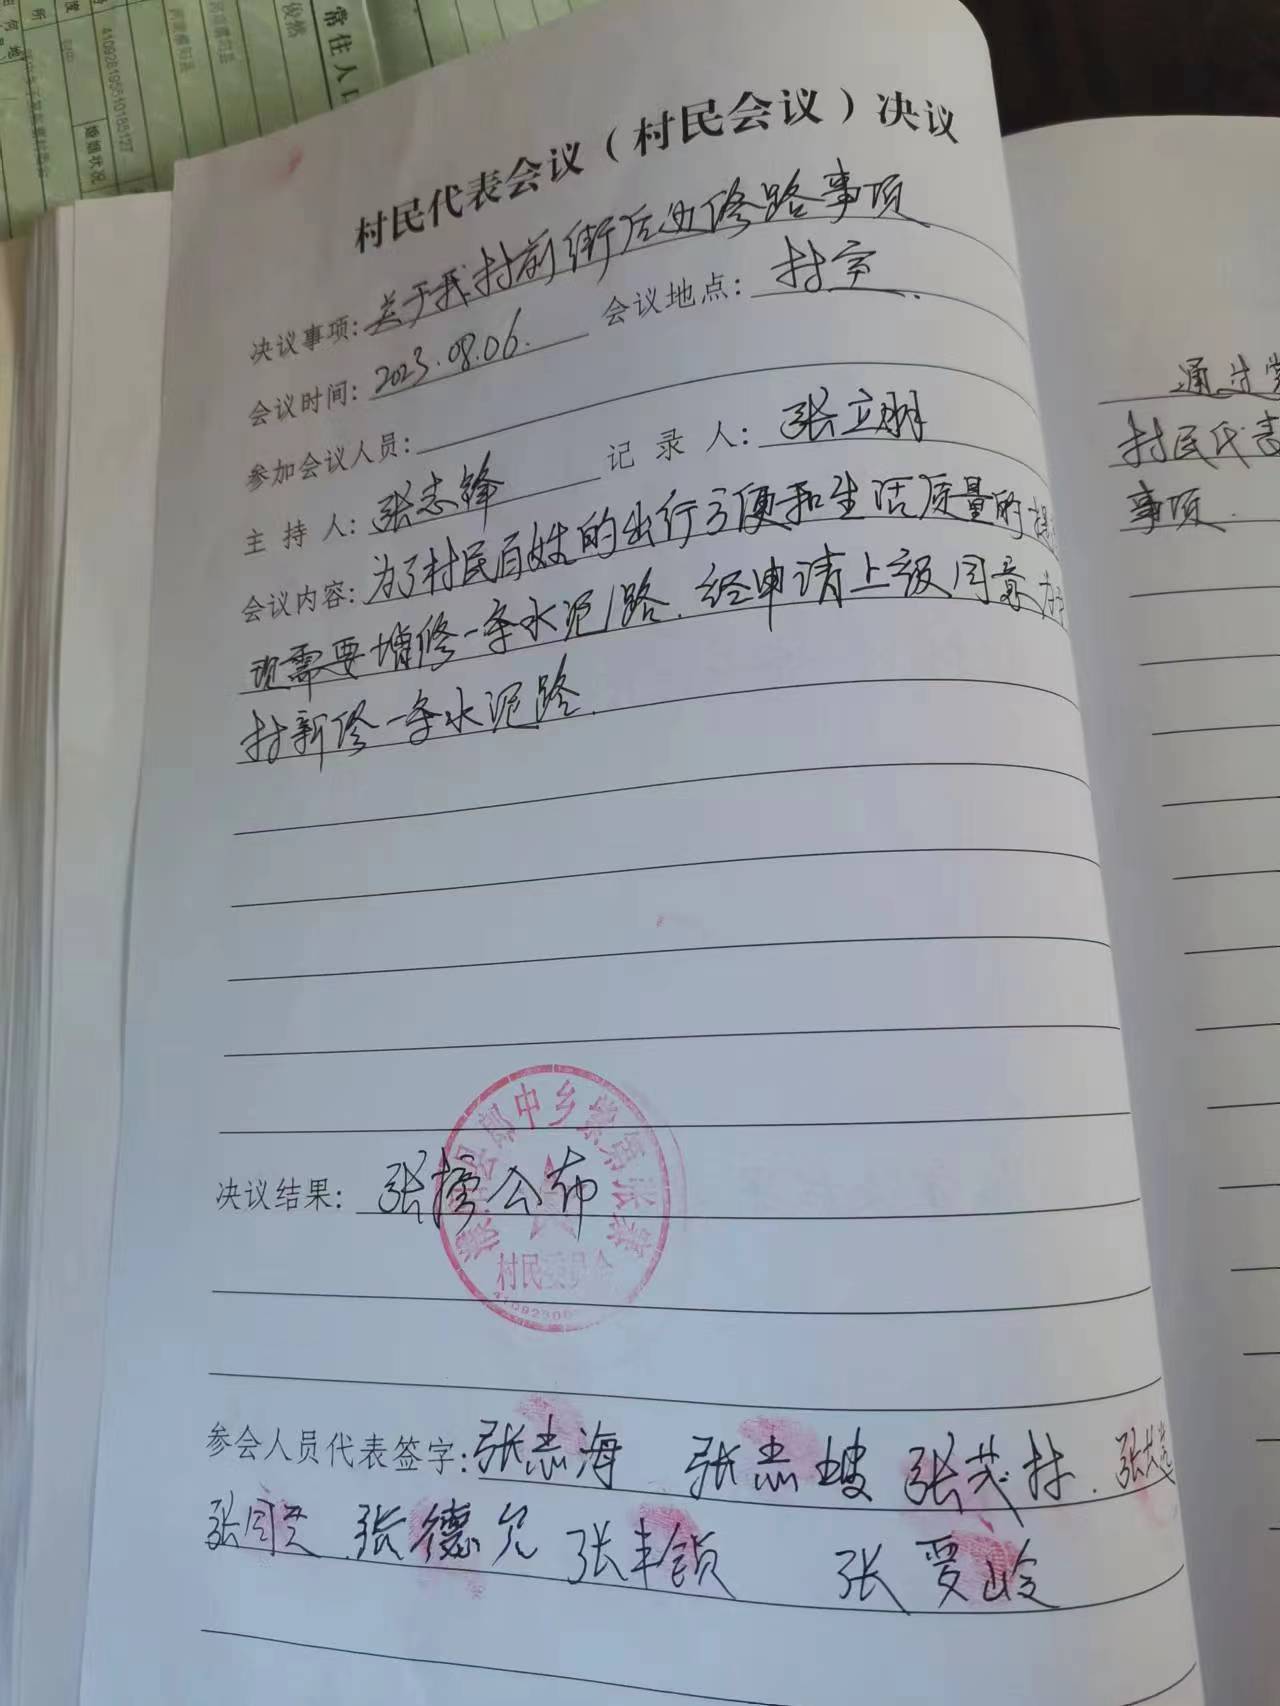 常住人口
俊然
410928195510185127
婚姻状况
村民代表会议（村民会议）决议
决议事项: 关于我村前街后边修路事项
会议时间: 2023.08.06. 会议地点: 村室.
参加会议人员:
主持人: 张志锋 记录人: 张立朋
会议内容: 为了村民百姓的出行方便和生活质量的提
现需要增修一条水泥路.经申请上级同意为
村新修一条水泥路.
决议结果: 张榜公布
县郎中乡 张寨
村民委员会
4109230
参会人员代表签字: 张志海 张志坡 张茂林.张
张同 张德允 张丰锁 张爱岭
通过
村民代表
事项.